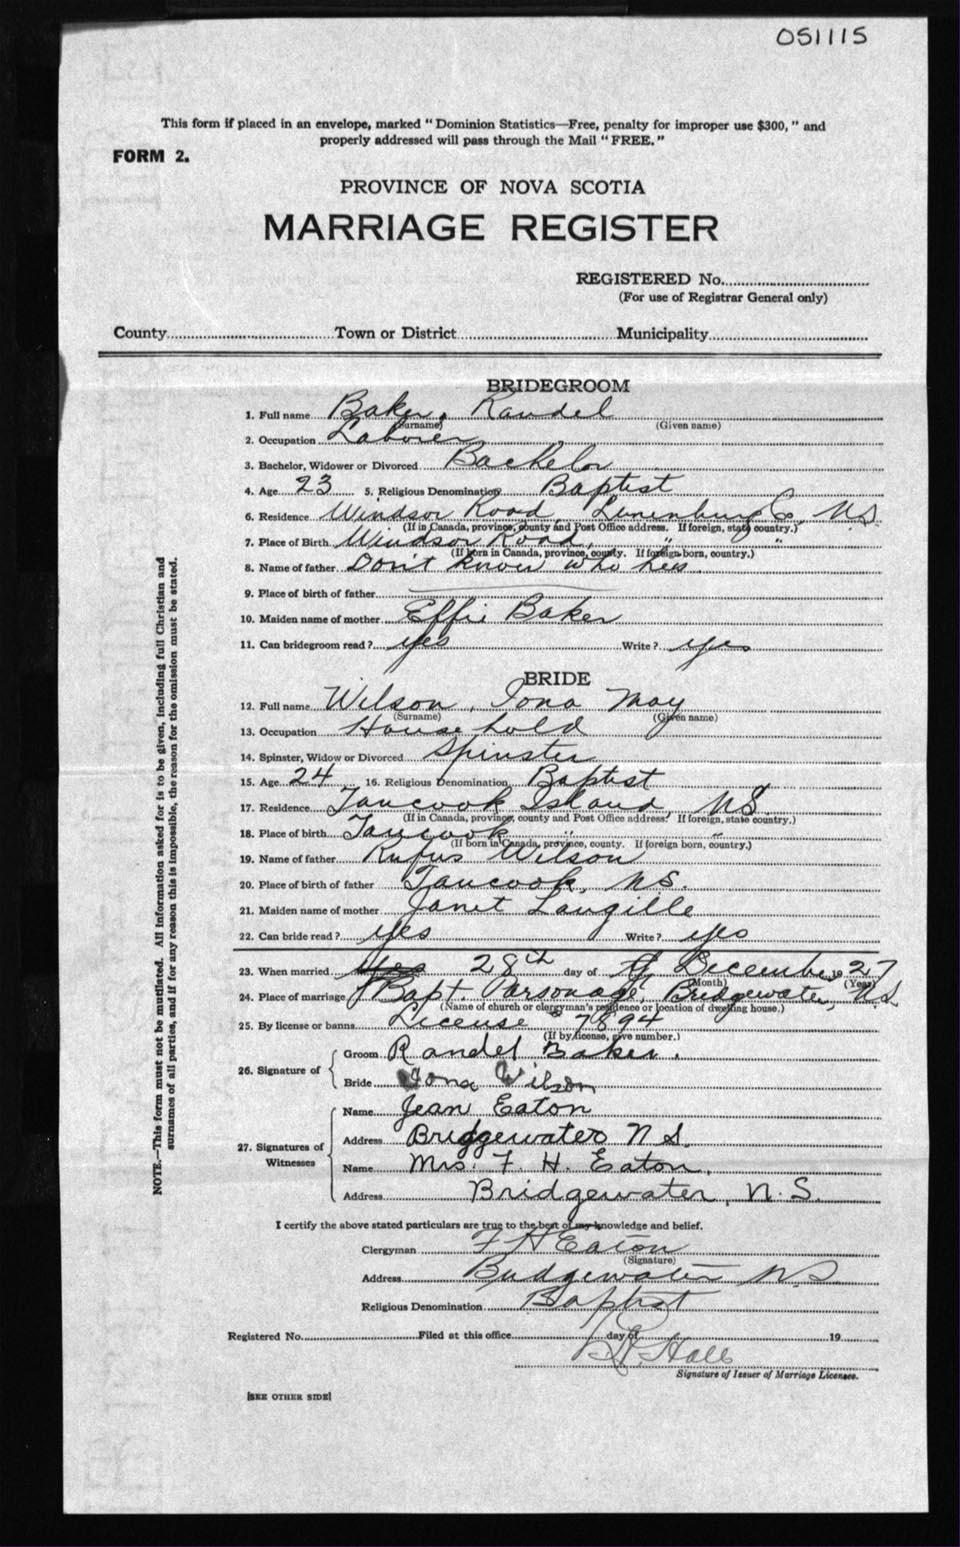 051115
This form if placed in an envelope, marked "Dominion Statistics—Free, penalty for improper use $300," and
properly addressed will pass through the Mail "FREE."
FORM 2.
PROVINCE OF NOVA SCOTIA
MARRIAGE REGISTER
REGISTERED No.
(For use of Registrar General only)
County Town or District Municipality
BRIDEGROOM
1. Full name Baker, Randel
(Surname) (Given name)
2. Occupation Laborer
3. Bachelor, Widower or Divorced Bachelor
4. Age 23 5. Religious Denomination Baptist
6. Residence Windsor Road, Lunenburg Co, N.S.
(If in Canada, province, county and Post Office address. If foreign, state country.)
7. Place of Birth Windsor Road, " "
(If born in Canada, province, county. If foreign born, country.)
8. Name of father Don't know who he is
9. Place of birth of father
10. Maiden name of mother Effie Baker
11. Can bridegroom read? yes Write? yes
BRIDE
12. Full name Wilson, Iona May
(Surname) (Given name)
13. Occupation Household
14. Spinster, Widow or Divorced Spinster
15. Age 24 16. Religious Denomination Baptist
17. Residence Tancook Island, N.S.
(If in Canada, province, county and Post Office address. If foreign, state country.)
18. Place of birth Tancook " "
(If born in Canada, province, county. If foreign born, country.)
19. Name of father Rufus Wilson
20. Place of birth of father Tancook, N.S.
21. Maiden name of mother Janet Langille
22. Can bride read? yes Write? yes
23. When married yes 28th day of of December 1927
(Month) (Year)
24. Place of marriage Bapt. Parsonage, Bridgewater, N.S.
(Name of church or clergyman's residence or location of dwelling house.)
25. By license or banns License 7894
(If by license, give number.)
26. Signature of Groom Randel Baker.
Bride Iona Wilson
27. Signatures of Witnesses Name Jean Eaton
Address Bridgewater N S.
Name Mrs. F. H. Eaton,
Address Bridgewater, N.S.
I certify the above stated particulars are true to the best of my knowledge and belief.
Clergyman F H Eaton
(Signature)
Address Bridgewater N.S
Religious Denomination Baptist
Registered No. Filed at this office day of 19
Hall
Signature of Issuer of Marriage Licenses.
[SEE OTHER SIDE]
NOTE.—This form must not be mutilated. All information asked for is to be given, including full Christian and
surnames of all parties, and if for any reason this is impossible, the reason for the omission must be stated.